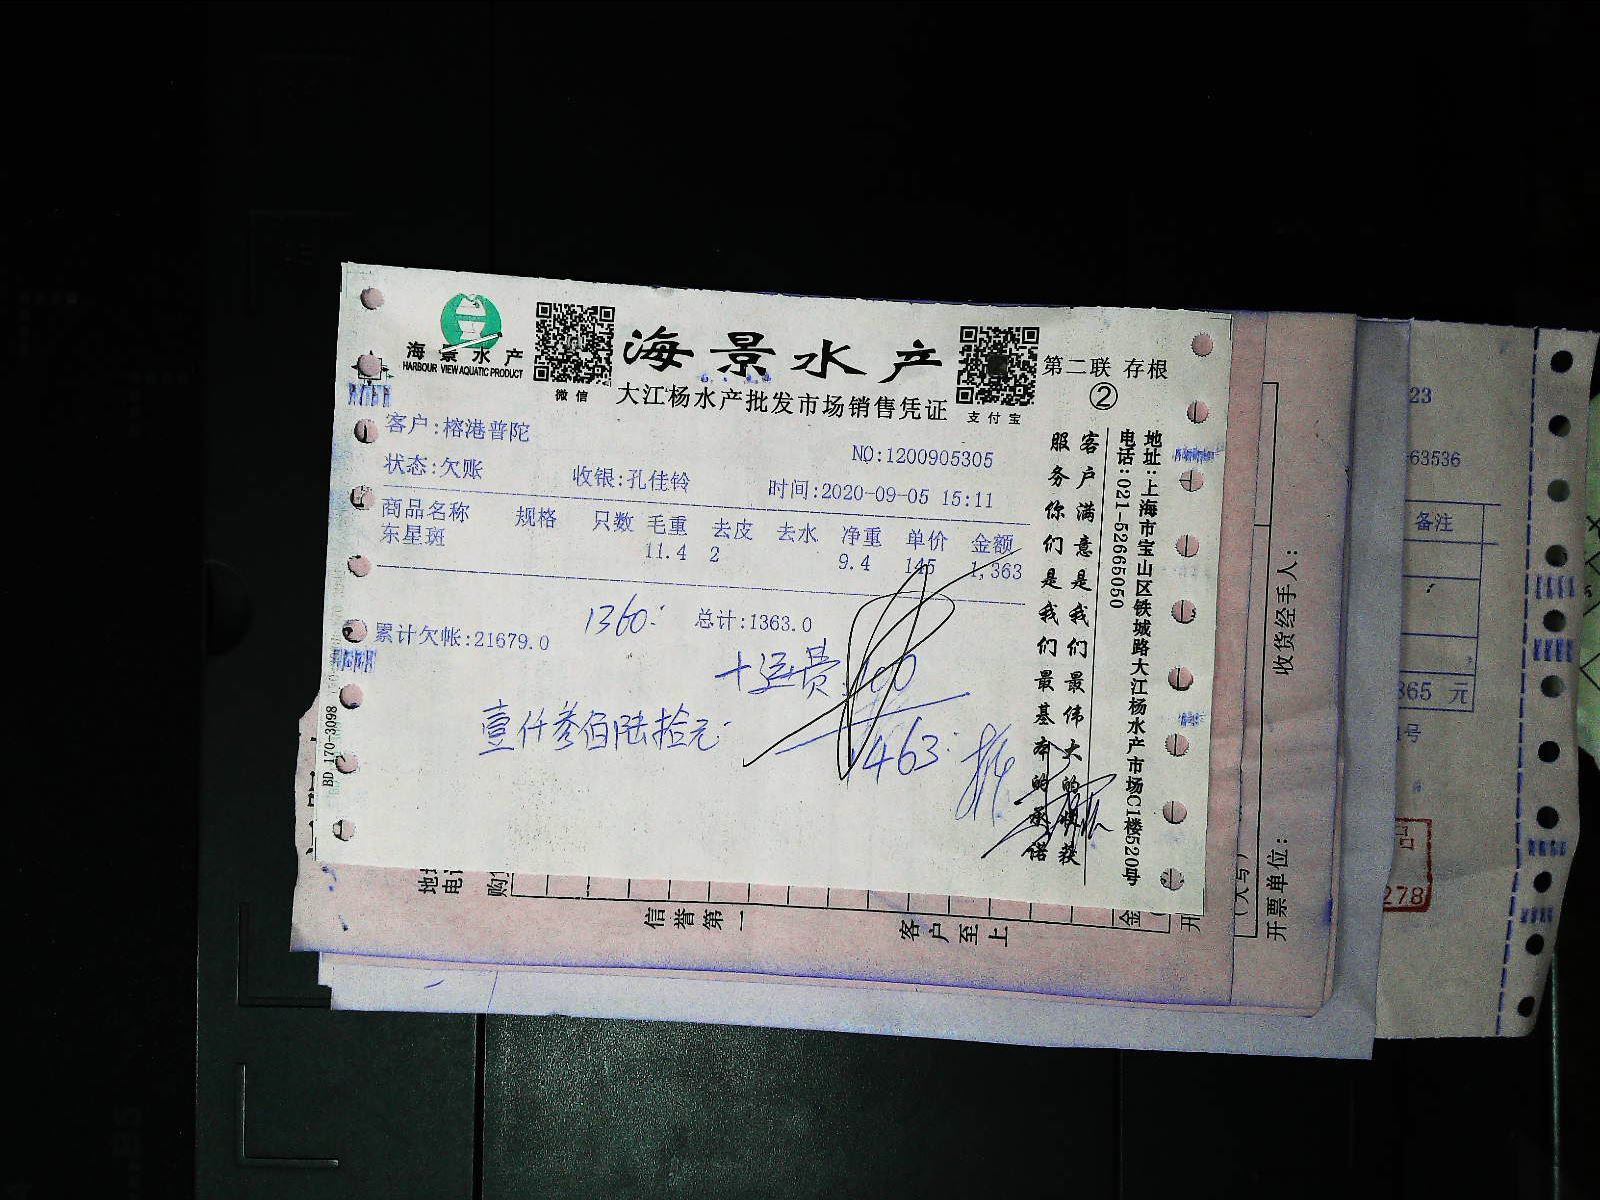 海景水产
HARBOUR VIEW AQUATIC PRODUCT
微信
海景水产
大江杨水产批发市场销售凭证
支付宝
第二联 存根
②
客户:榕港普陀
NO:1200905305
状态:欠账 收银:孔佳铃 时间:2020-09-05 15:11
商品名称 规格 只数 毛重 去皮 去水 净重 单价 金额
东星斑 11.4 2 9.4 145 1,363
累计欠帐:21679.0 总计:1363.0
1360:
十运费 100
壹仟叁佰陆拾元:
1463:
客户满意是我们最伟大的收获
服务你们是我们最基本的承诺
地址:上海市宝山区铁城路大江杨水产市场C1楼520号
电话:021-52665050
BD 170-3098
信誉第一
客户至上
收货经手人:
开票单位:
(大写)
金
开
购
电
地
23
63536
备注
865 元
号
278